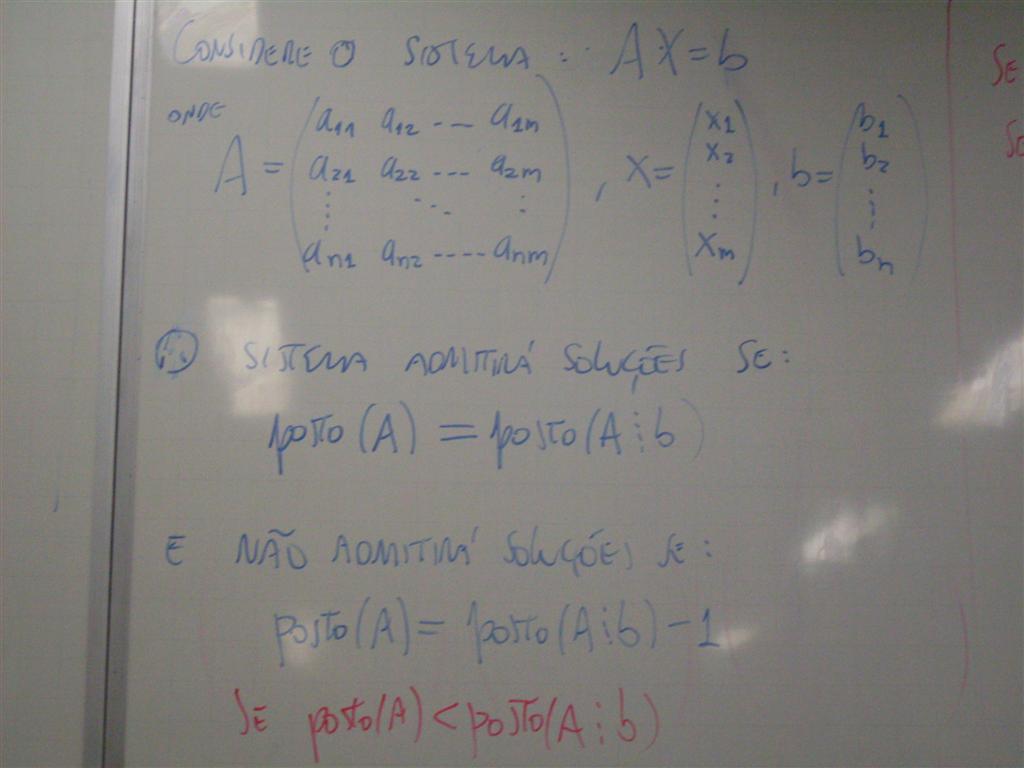 CONSIDERE O SISTEMA: AX=b
ONDE
A = (a11 a12 --- a1m
a21 a22 --- a2m
⋮ ⋱ ⋮
an1 an2 ---- anm) , X = (x1
x2
⋮
xm) , b = (b1
b2
⋮
bn)
SISTEMA ADMITIRÁ SOLUÇÕES SE:
posto(A) = posto(A⋮b)
E NÃO ADMITIRÁ SOLUÇÕES SE:
posto(A) = posto(A⋮b) - 1
SE posto(A) < posto(A⋮b)
SE